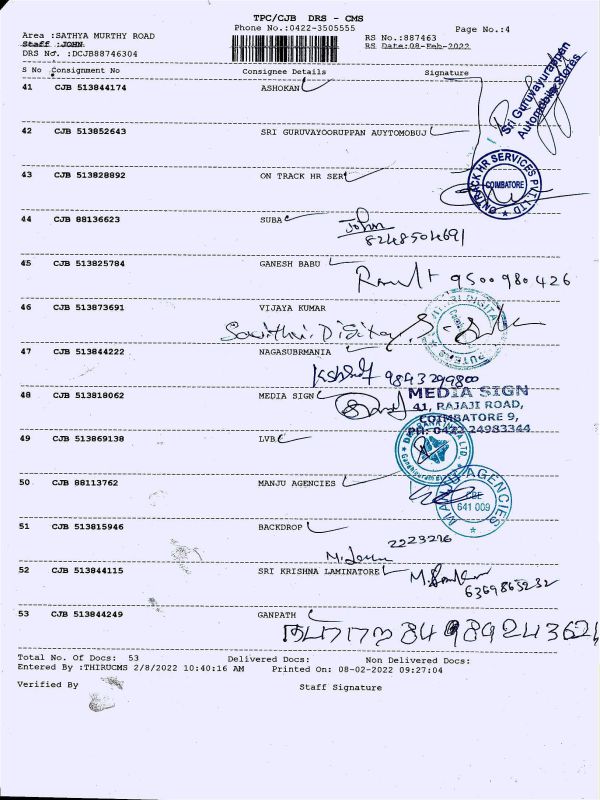 TPC/CJB DRS - CMS
Phone No.:0422-3505555
Page No.:4
Area :SATHYA MURTHY ROAD
RS No.:887463
Staff :JOHN
RS Date:08-Feb-2022
DRS No. :DCJB88746304
S No Consignment No Consignee Details Signature
41 CJB 513844174 ASHOKAN
Sri Guruvayurappan
42 CJB 513852643 SRI GURUVAYOORUPPAN AUYTOMOBUJ
43 CJB 513828892 ON TRACK HR SER
ONTRACK HR SERVICES PVT LTD
COIMBATORE
44 CJB 88136623 SUBA
John
8248504691
45 CJB 513825784 GANESH BABU
9500980426
46 CJB 513873691 VIJAYA KUMAR
47 CJB 513844222 NAGASUBRMANIA
9843299800
48 CJB 513818062 MEDIA SIGN
MEDIA SIGN
41, RAJAJI ROAD,
COIMBATORE 9,
49 CJB 513869138 LVB
50 CJB 88113762 MANJU AGENCIES
AGENCIES
CBE
641 009
51 CJB 513815946 BACKDROP
2223276
52 CJB 513844115 SRI KRISHNA LAMINATORE
6369865232
53 CJB 513844249 GANPATH
Total No. Of Docs: 53 Delivered Docs: Non Delivered Docs:
Entered By :THIRUCMS 2/8/2022 10:40:16 AM Printed On: 08-02-2022 09:27:04
Verified By Staff Signature